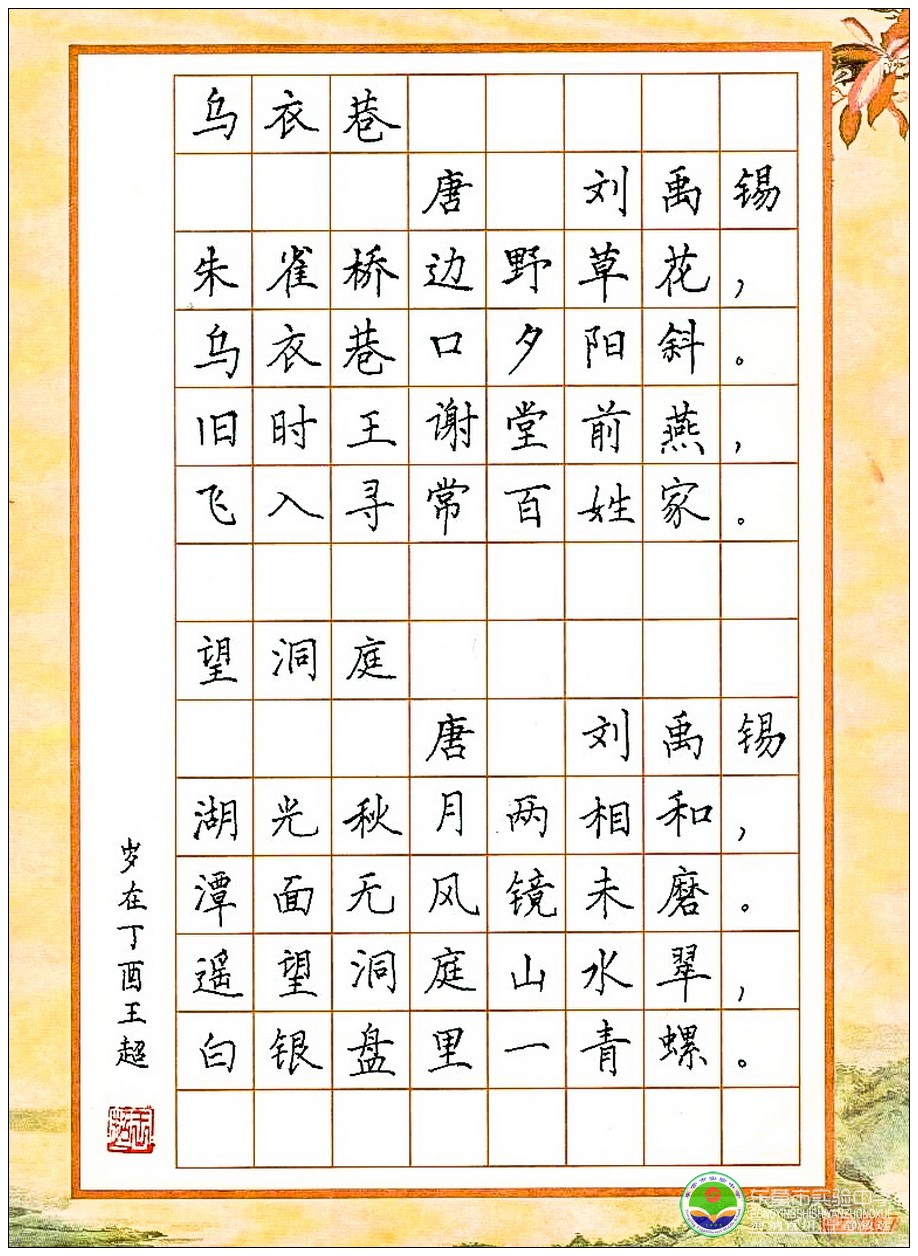 乌衣巷
唐 刘禹锡
朱雀桥边野草花，
乌衣巷口夕阳斜。
旧时王谢堂前燕，
飞入寻常百姓家。
望洞庭
唐 刘禹锡
湖光秋月两相和，
潭面无风镜未磨。
遥望洞庭山水翠，
白银盘里一青螺。
岁在丁酉王超
东营市实验中学